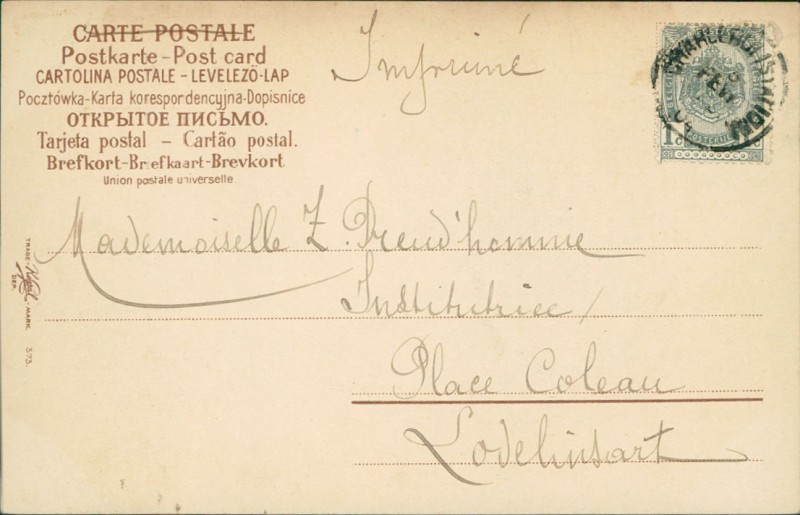 CARTE POSTALE
Postkarte - Post card
CARTOLINA POSTALE - LEVELEZÖ-LAP
Pocztówka-Karta korespondencyjna-Dopisnice
ОТКРЫТОЕ ПИСЬМО.
Tarjeta postal - Cartão postal.
Brefkort-Briefkaart-Brevkort
Union postale universelle.
Imprimé
Mademoiselle Z. Preud'homme
Institutrice/
Place Coleau
Lodelinsart
TRADE-
DEP.
-MARK.
373.